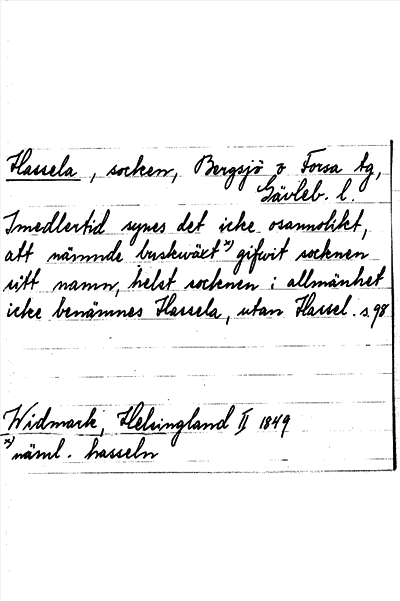 Hassela, socken, Bergsjö o Forsa tg,
Gävleb. l.
Imedlertid synes det icke osannolikt,
att nämnde buskväxt x) gifvit socknen
sitt namn, helst socknen i allmänhet
icke benämnes Hassela, utan Hassel. s. 98
Widmark, Helsingland II 1849
x) näml. hasseln